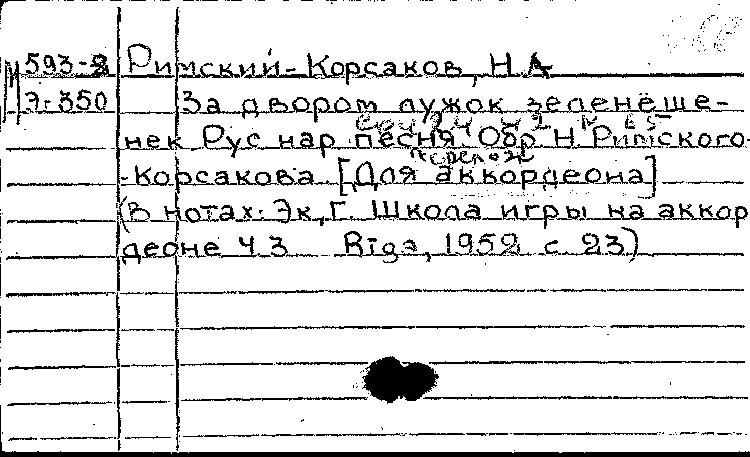 593-8 Римский-Корсаков, Н.А.
Э-350 За двором лужок зеленёше-
нек. Рус. нар. песня. Обр. Н. Римского-
-Корсакова. [Для аккордеона]
(В нотах: Эк, Г. Школа игры на аккор
деоне Ч. 3 Riga, 1952 с. 23)